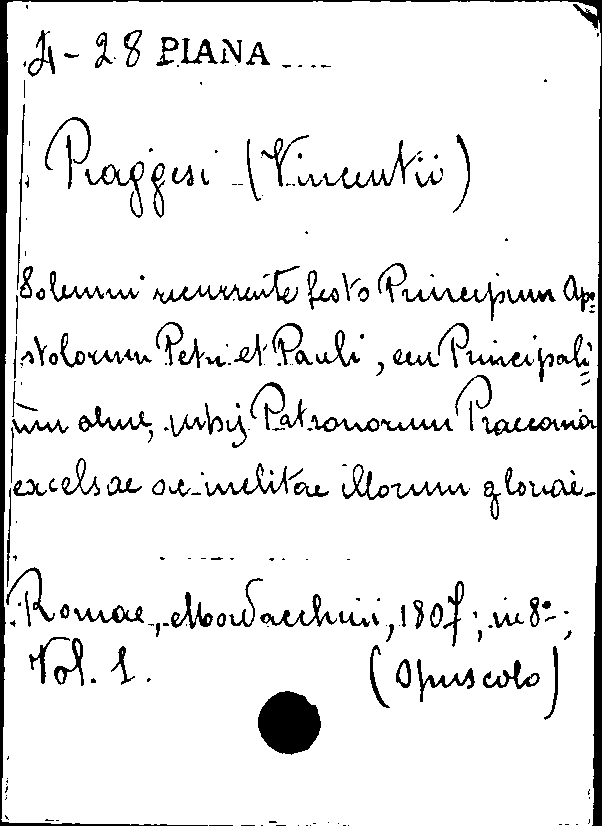 4-28 PIANA
Piaggesi (Vincentii)
Solemni recurrente festo Principum Apo=
stolorum Petri et Pauli, ceu Principali=
um almae urbis Patronorum Praeconia
excelsae ac inclitae illorum gloriae-
Romae, Mordacchini, 1807; in 8º;
Vol. 1. (Opuscolo)